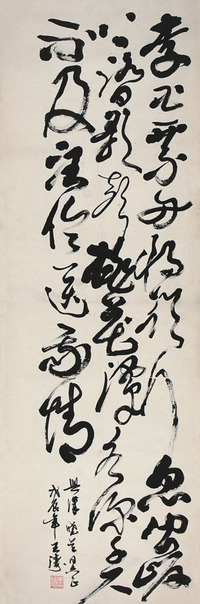 李白乘舟將欲行忽聞岸
上踏歌聲桃花潭水深千尺
不及汪倫送我情
戊辰年